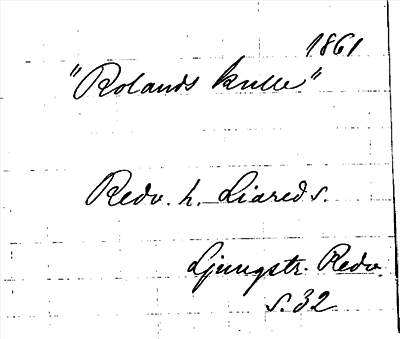 1861
"Rolands kulle"
Redv. h. Liareds s.
Ljungstr. Redv.
s. 32